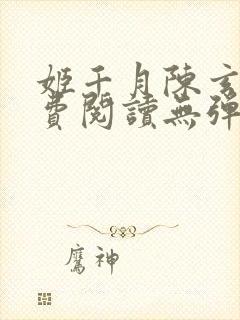 姬千月陳玄
費閱讀無彈
鷹神